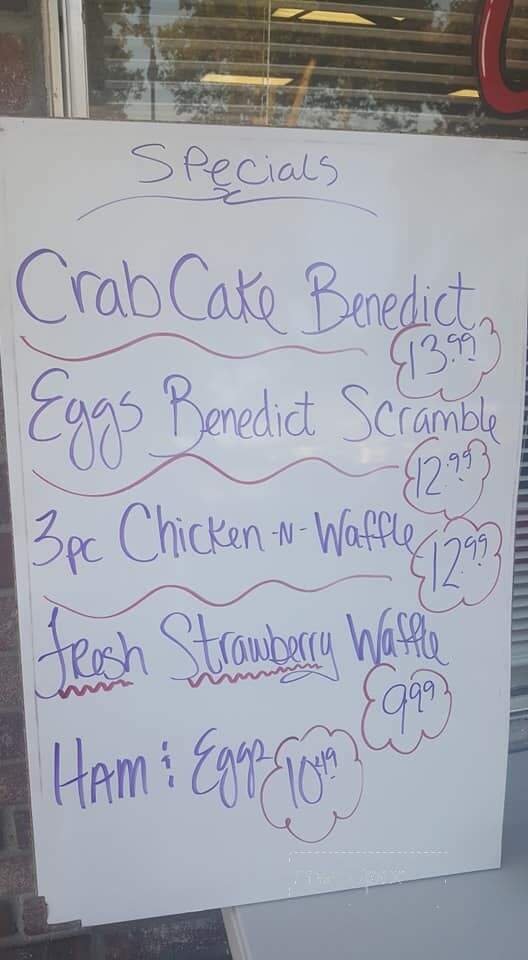 Specials
Crab Cake Benedict
13.99
Eggs Benedict Scramble
12.99
3pc Chicken-N-Waffle
12.99
fresh Strawberry Waffle
9.99
Ham & Eggs
10.49